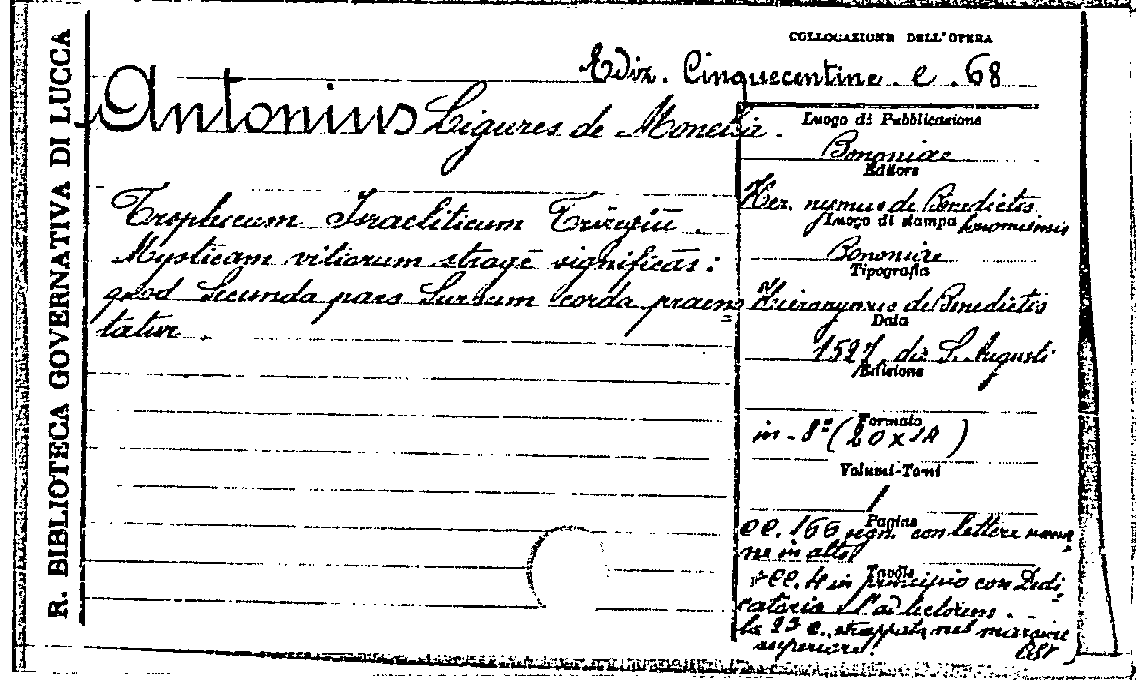 R. BIBLIOTECA GOVERNATIVA DI LUCCA
COLLOCAZIONE DELL'OPERA
Ediz. Cinquecentine. e. 68
Antonius Ligures de Moneilia.
Tropheum Israeliticum Trizegiū.
Mysticam vitiorum stragē significās:
quod Secunda pars Sursum corda praesen
tatur.
Luogo di Pubblicazione
Bononiae
Editore
Hier. nymus de Benedictis
Luogo di stampa bononiensis
Bononiae
Tipografia
Hieronymus de Benedictis
Data
1527, die S. Augusti
Edizione
Formato
in-8º (20 x 14)
Volumi-Tomi
1
Pagine
cc. 166 segn. con lettere roma
ne in alto
Tavole
+ cc. 4 in principio con Dedi
catoria e l'ad lectorem.
la 23 c. strappata nel margine
superiore!